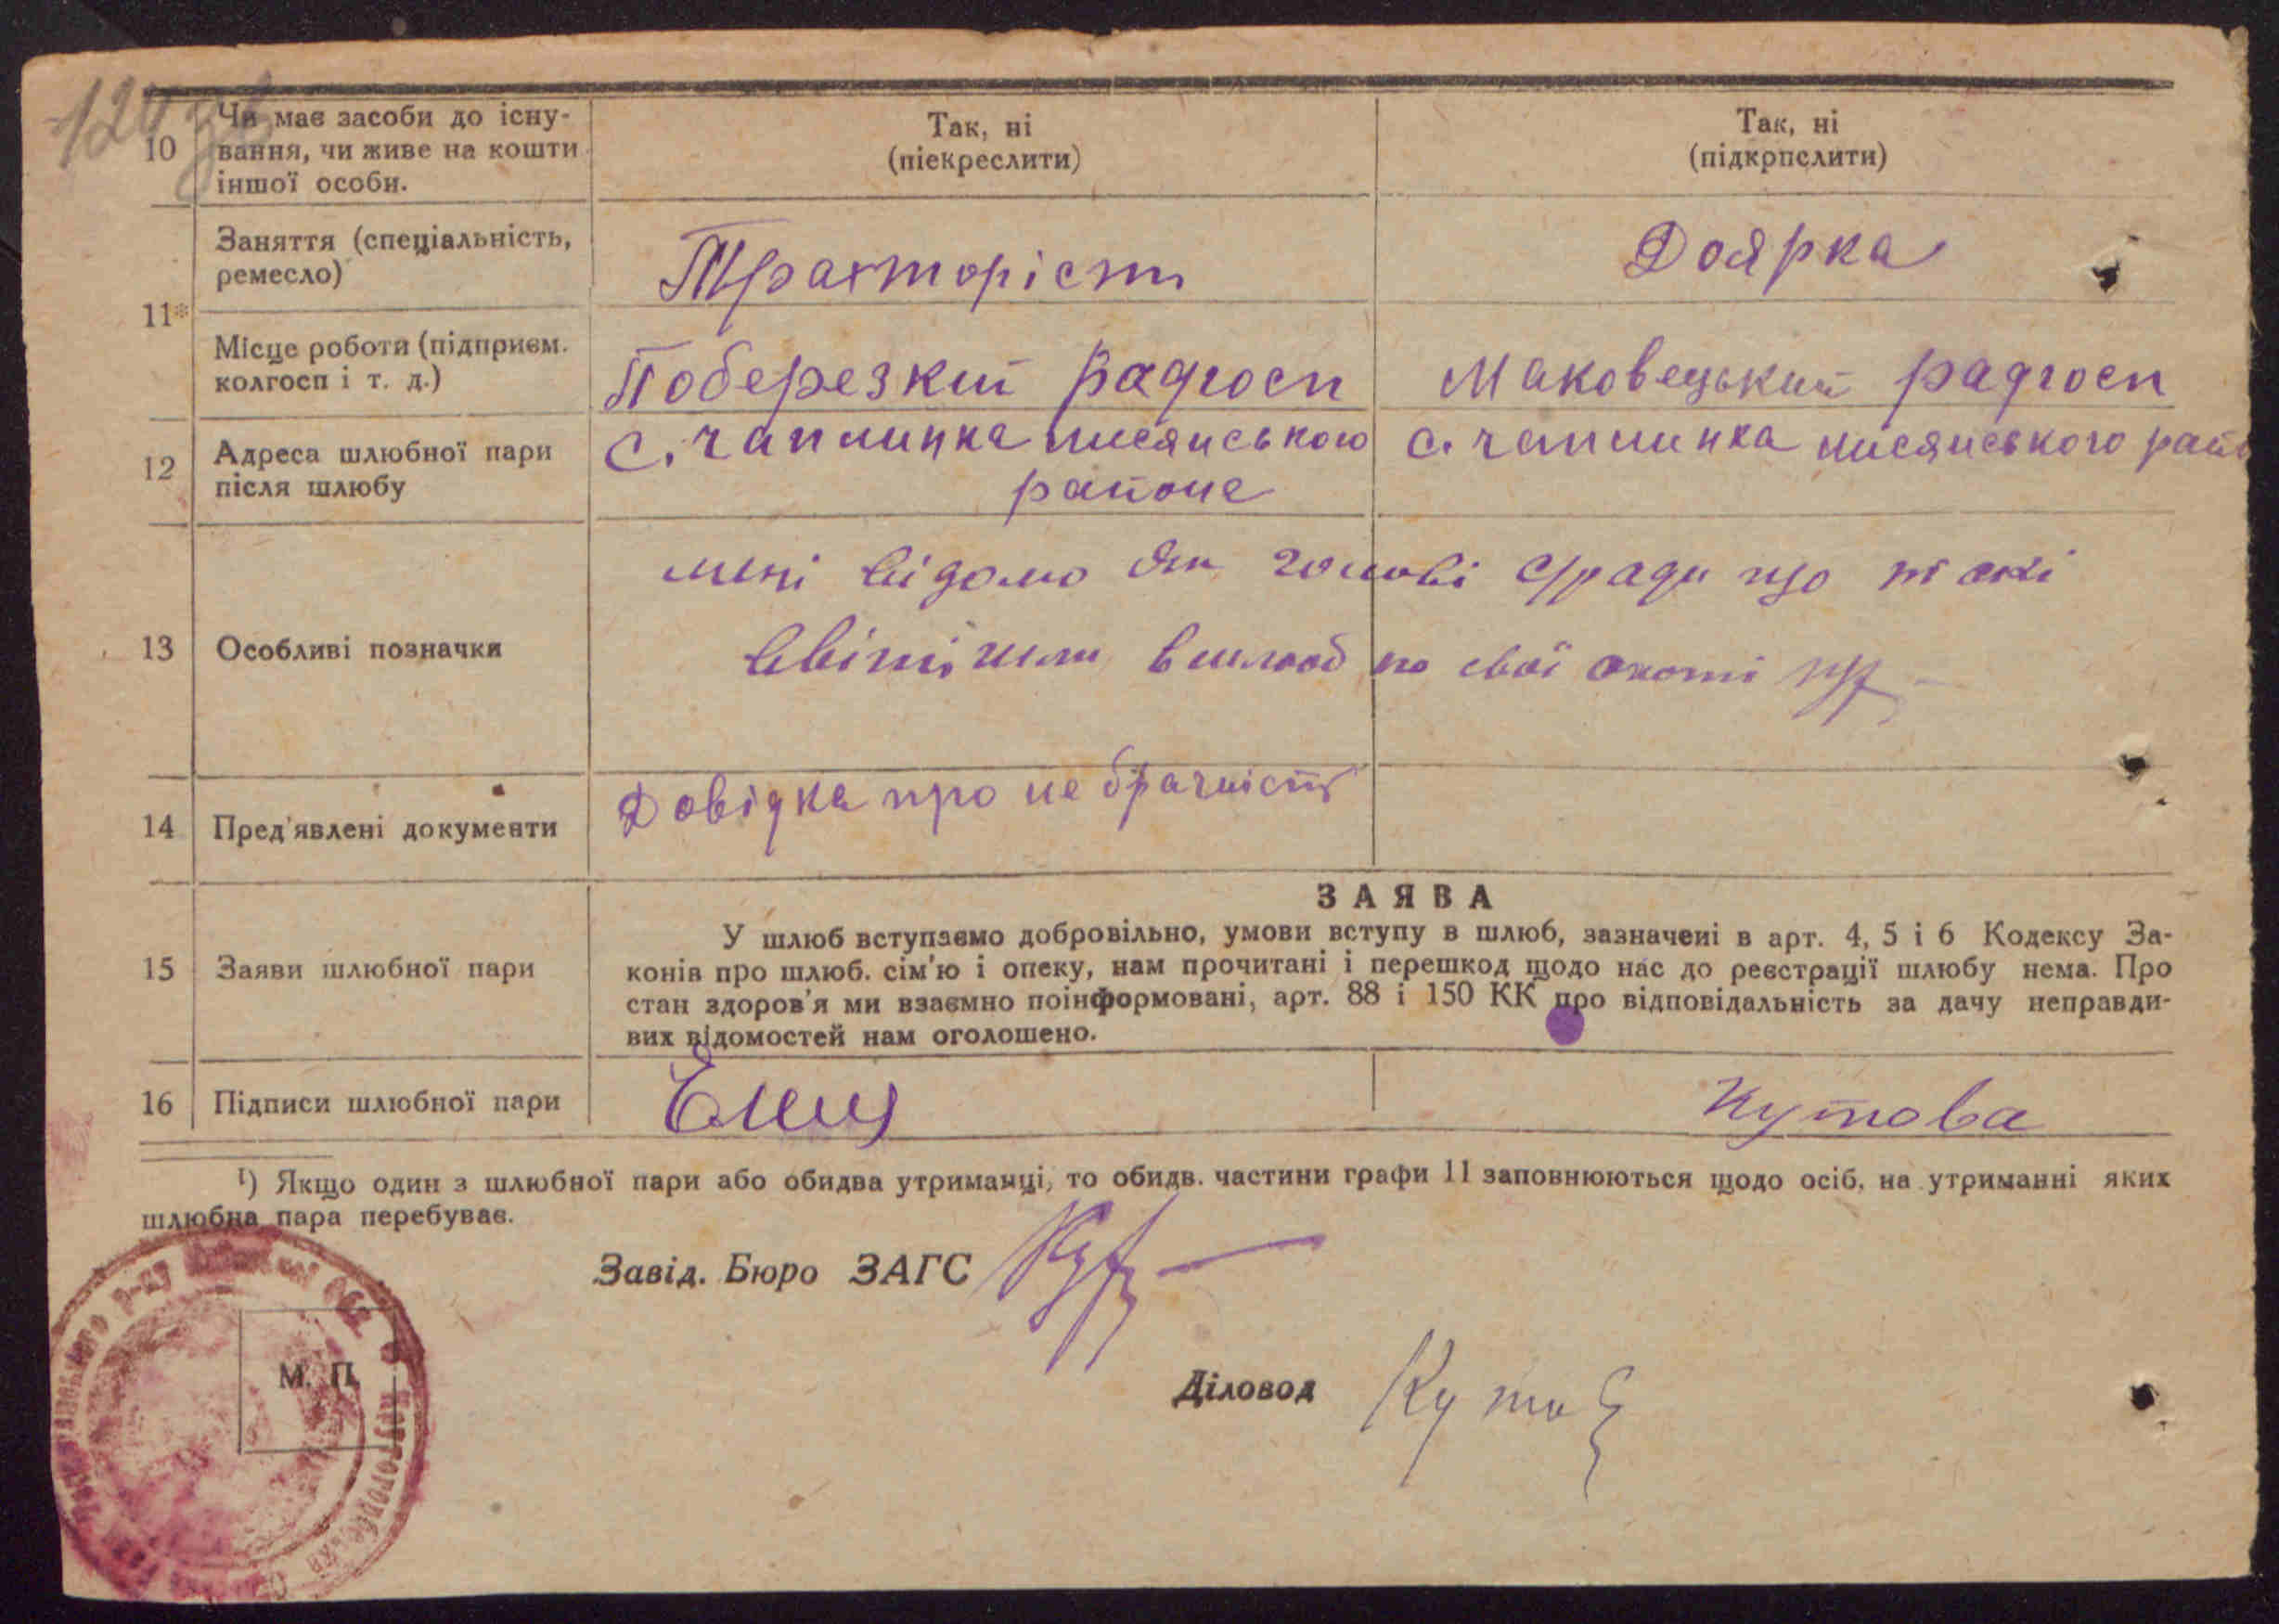 120 зв
10 Чи має засоби до існу-
вання, чи живе на кошти
іншої особи.
Так, ні
(піекреслити)
Так, ні
(підкрпслити)
11*
Заняття (спеціальність,
ремесло)
Трахторіст
Доярка
Місце роботи (підприєм.
колгосп і т. д.)
Поберезкий радгосп
Маковецький радгосп
12 Адреса шлюбної пари
після шлюбу
с. чаплинка лисянського
районе
с. чаплинка лисянського рай
13 Особливі позначки
мені відомо як голові с/ради що такі
в шлюб по свої охоті
14 Пред'явлені документи
Довідка про не брачність
15 Заяви шлюбної пари
ЗАЯВА
У шлюб вступаємо добровільно, умови вступу в шлюб, зазначені в арт. 4, 5 і 6 Кодексу За-
конів про шлюб. сім'ю і опеку, нам прочитані і перешкод щодо нас до реєстрації шлюбу нема. Про
стан здоров'я ми взаємно поінформовані, арт. 88 і 150 КК про відповідальність за дачу неправди-
вих відомостей нам оголошено.
16 Підписи шлюбної пари
Кутова
1) Якщо один з шлюбної пари або обидва утриманці, то обидв. частини графи 11 заповнюються щодо осіб, на утриманні яких
шлюбна пара перебуває.
Завід. Бюро ЗАГС
М. П.
Діловод